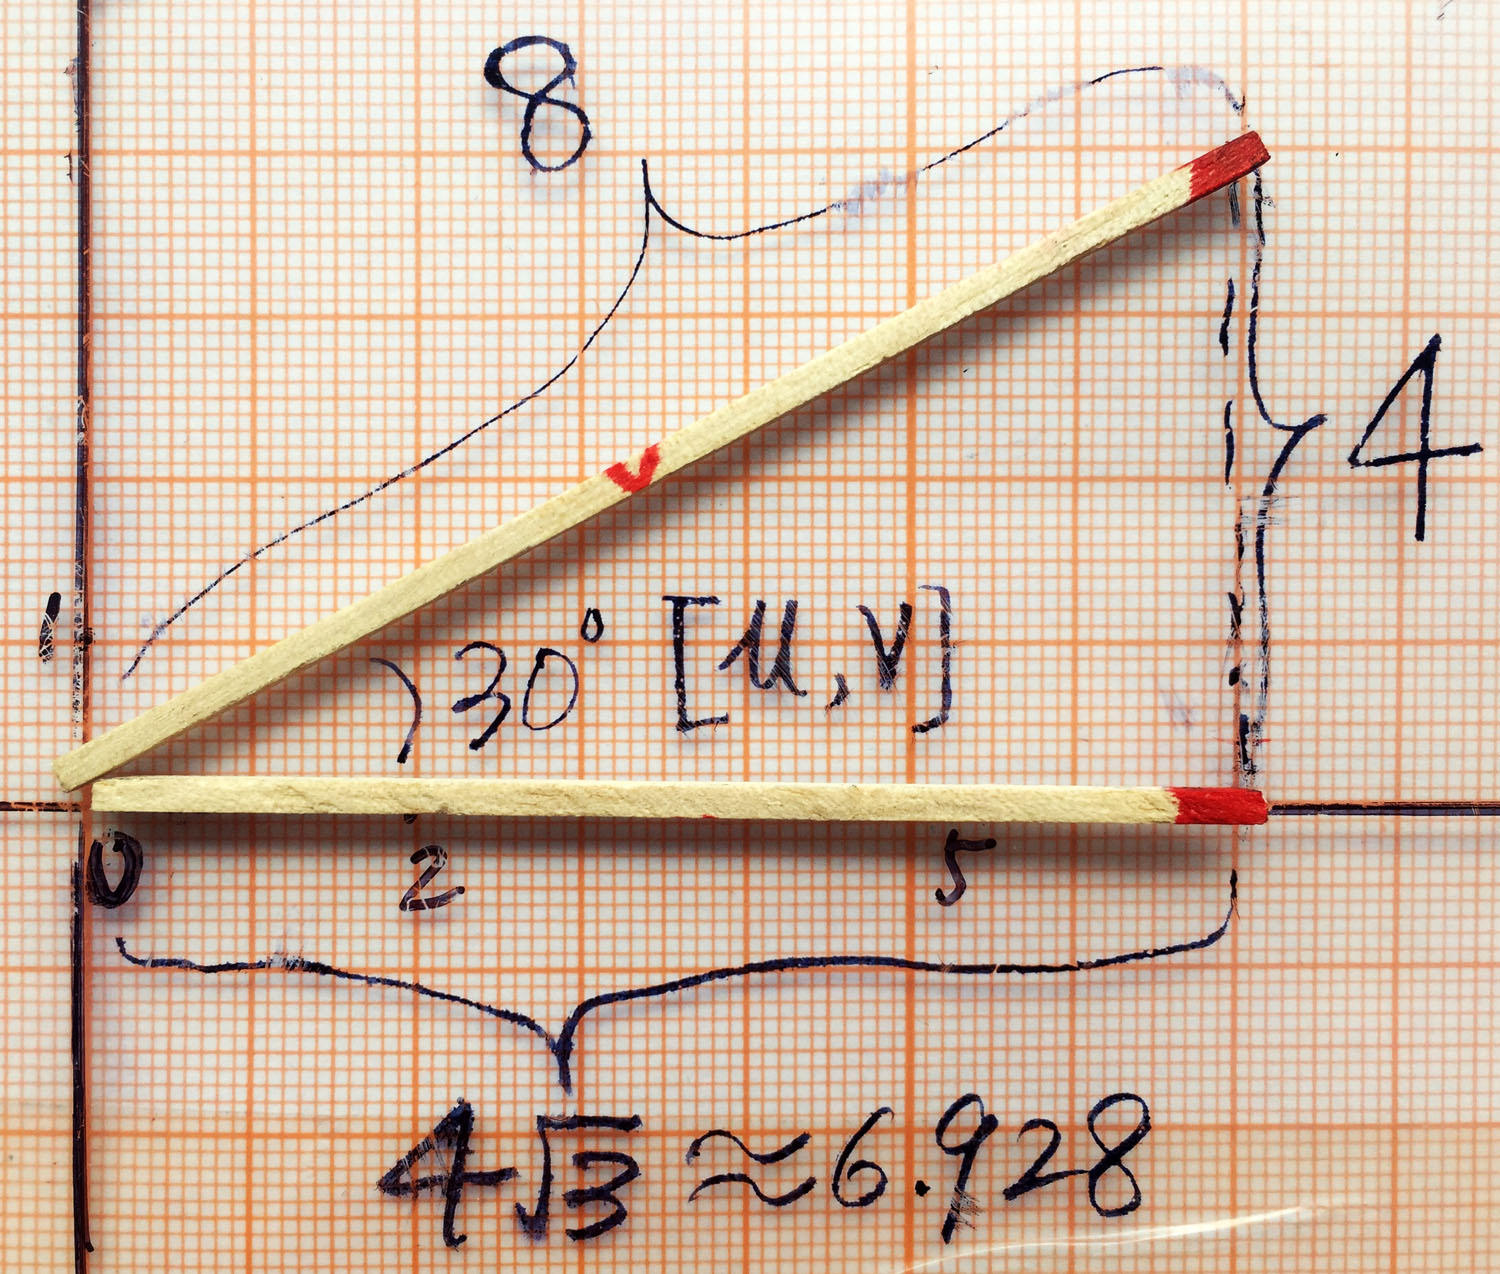 8
4
1
30° [u,v]
v
0 2 5
4√3 ≈ 6.928